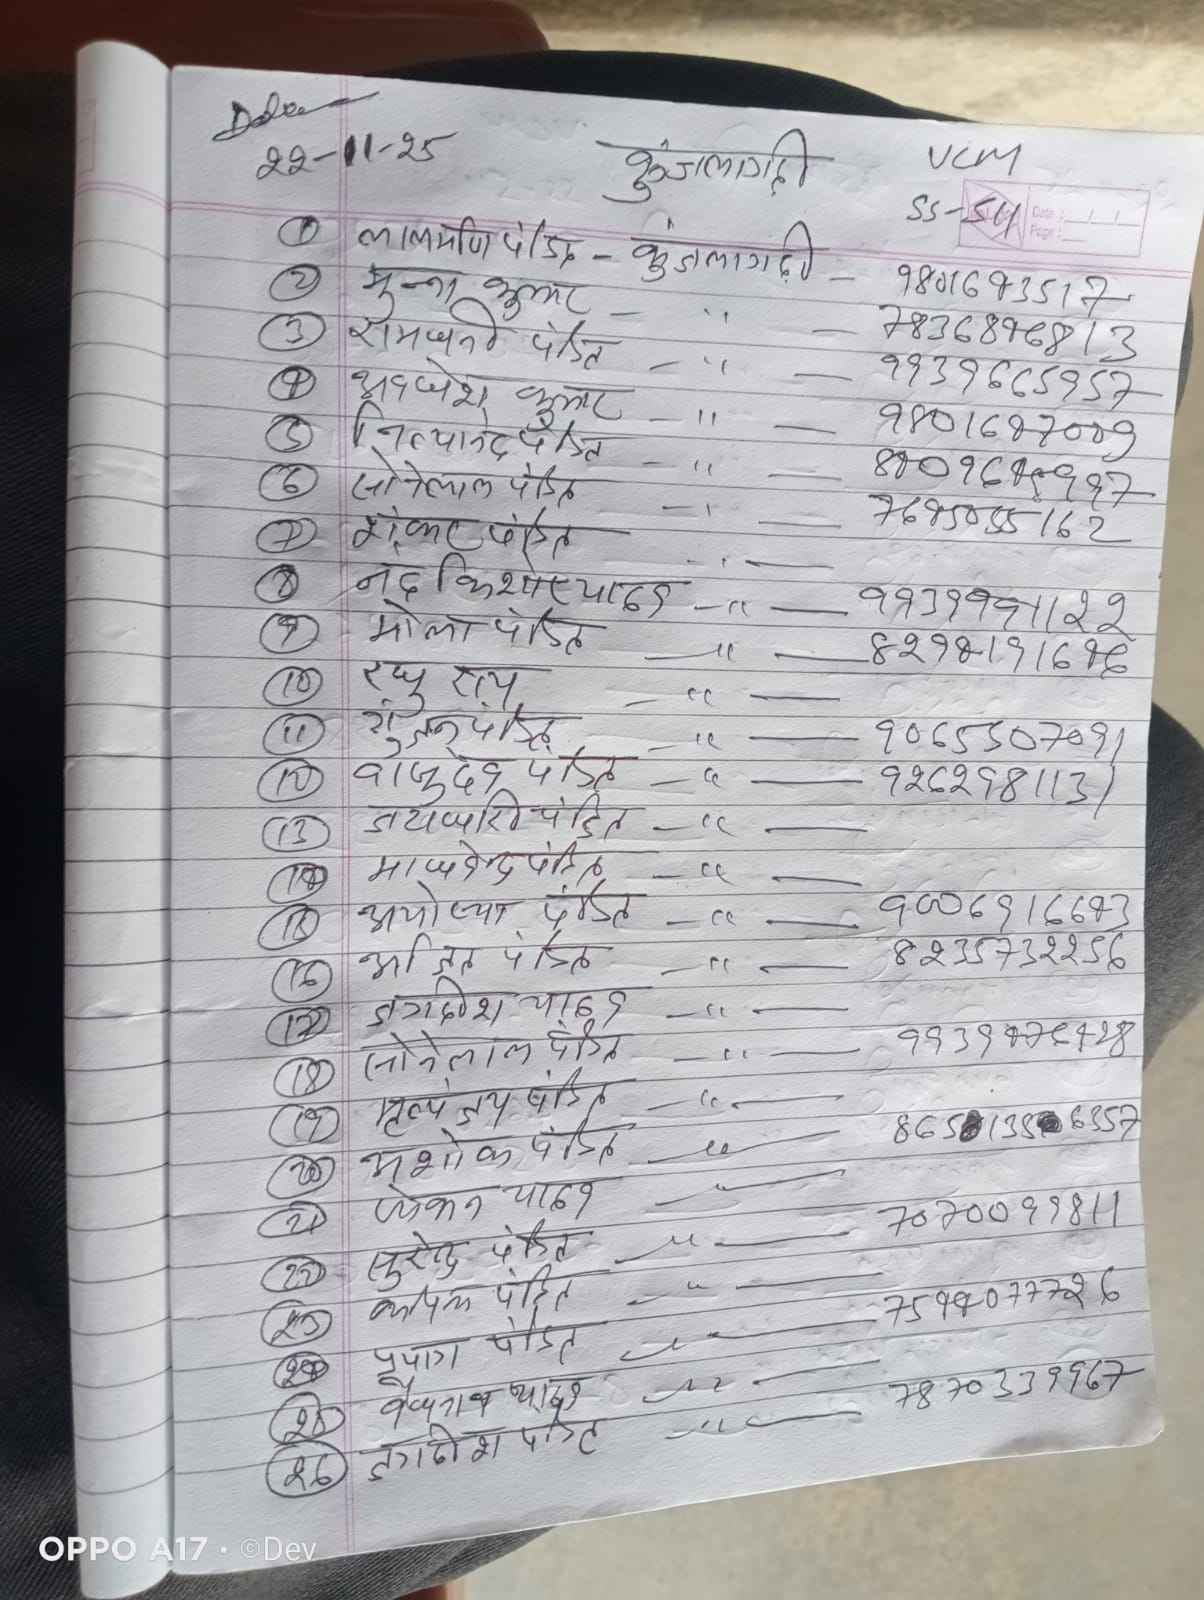 Date
22-11-25 कुंडलागढ़ी VCM
SS-511
Date :
Page :
① लालमणि पंडित - कुंडलागढ़ी - 9801643517
② मुन्ना कुमार - " - 7836846813
③ रामधनी पंडित - " - 9939665957
④ अवधेश कुमार - " - 9801647009
⑤ नित्यानंद पंडित - "
⑥ सोनेलाल पंडित - " - 7645055162
⑦ शंकर पंडित - " -
⑧ नंद किशोर यादव - " - 9939991122
⑨ भोला पंडित - " - 8294191646
⑩ रघु राय - " -
⑪ गुंजन पंडित - " - 9065307091
⑫ वासुदेव पंडित - " - 9262981131
⑬ जयधारी पंडित - " -
⑭ माधवेन्द्र पंडित - " -
⑮ अयोध्या पंडित - " - 9006916643
⑯ अजित पंडित - " - 8235732256
⑰ जगदीश यादव - " -
⑱ सोनेलाल पंडित - " - 9939476428
⑲ मृत्युंजय पंडित - " -
⑳ अशोक पंडित - " - 8651356357
㉑ यादव "
㉒ सुरेन्द्र पंडित - " - 7070099811
㉓ कपिल पंडित - " -
㉔ प्रयाग पंडित - " - 7594077726
㉕ वैधनाथ यादव - " -
㉖ जगदीश पंडित - " - 7870339967
OPPO A17 · ©Dev